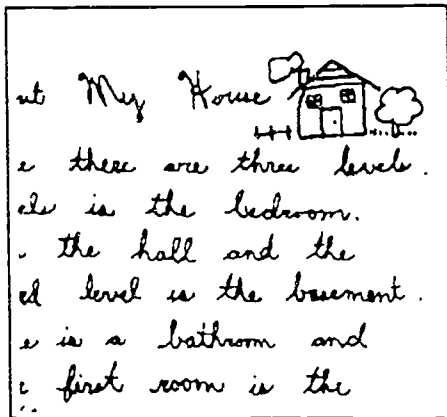 My House
there are three levels.
is the bedroom.
the hall and the
level is the basement.
is a bathroom and
first room is the